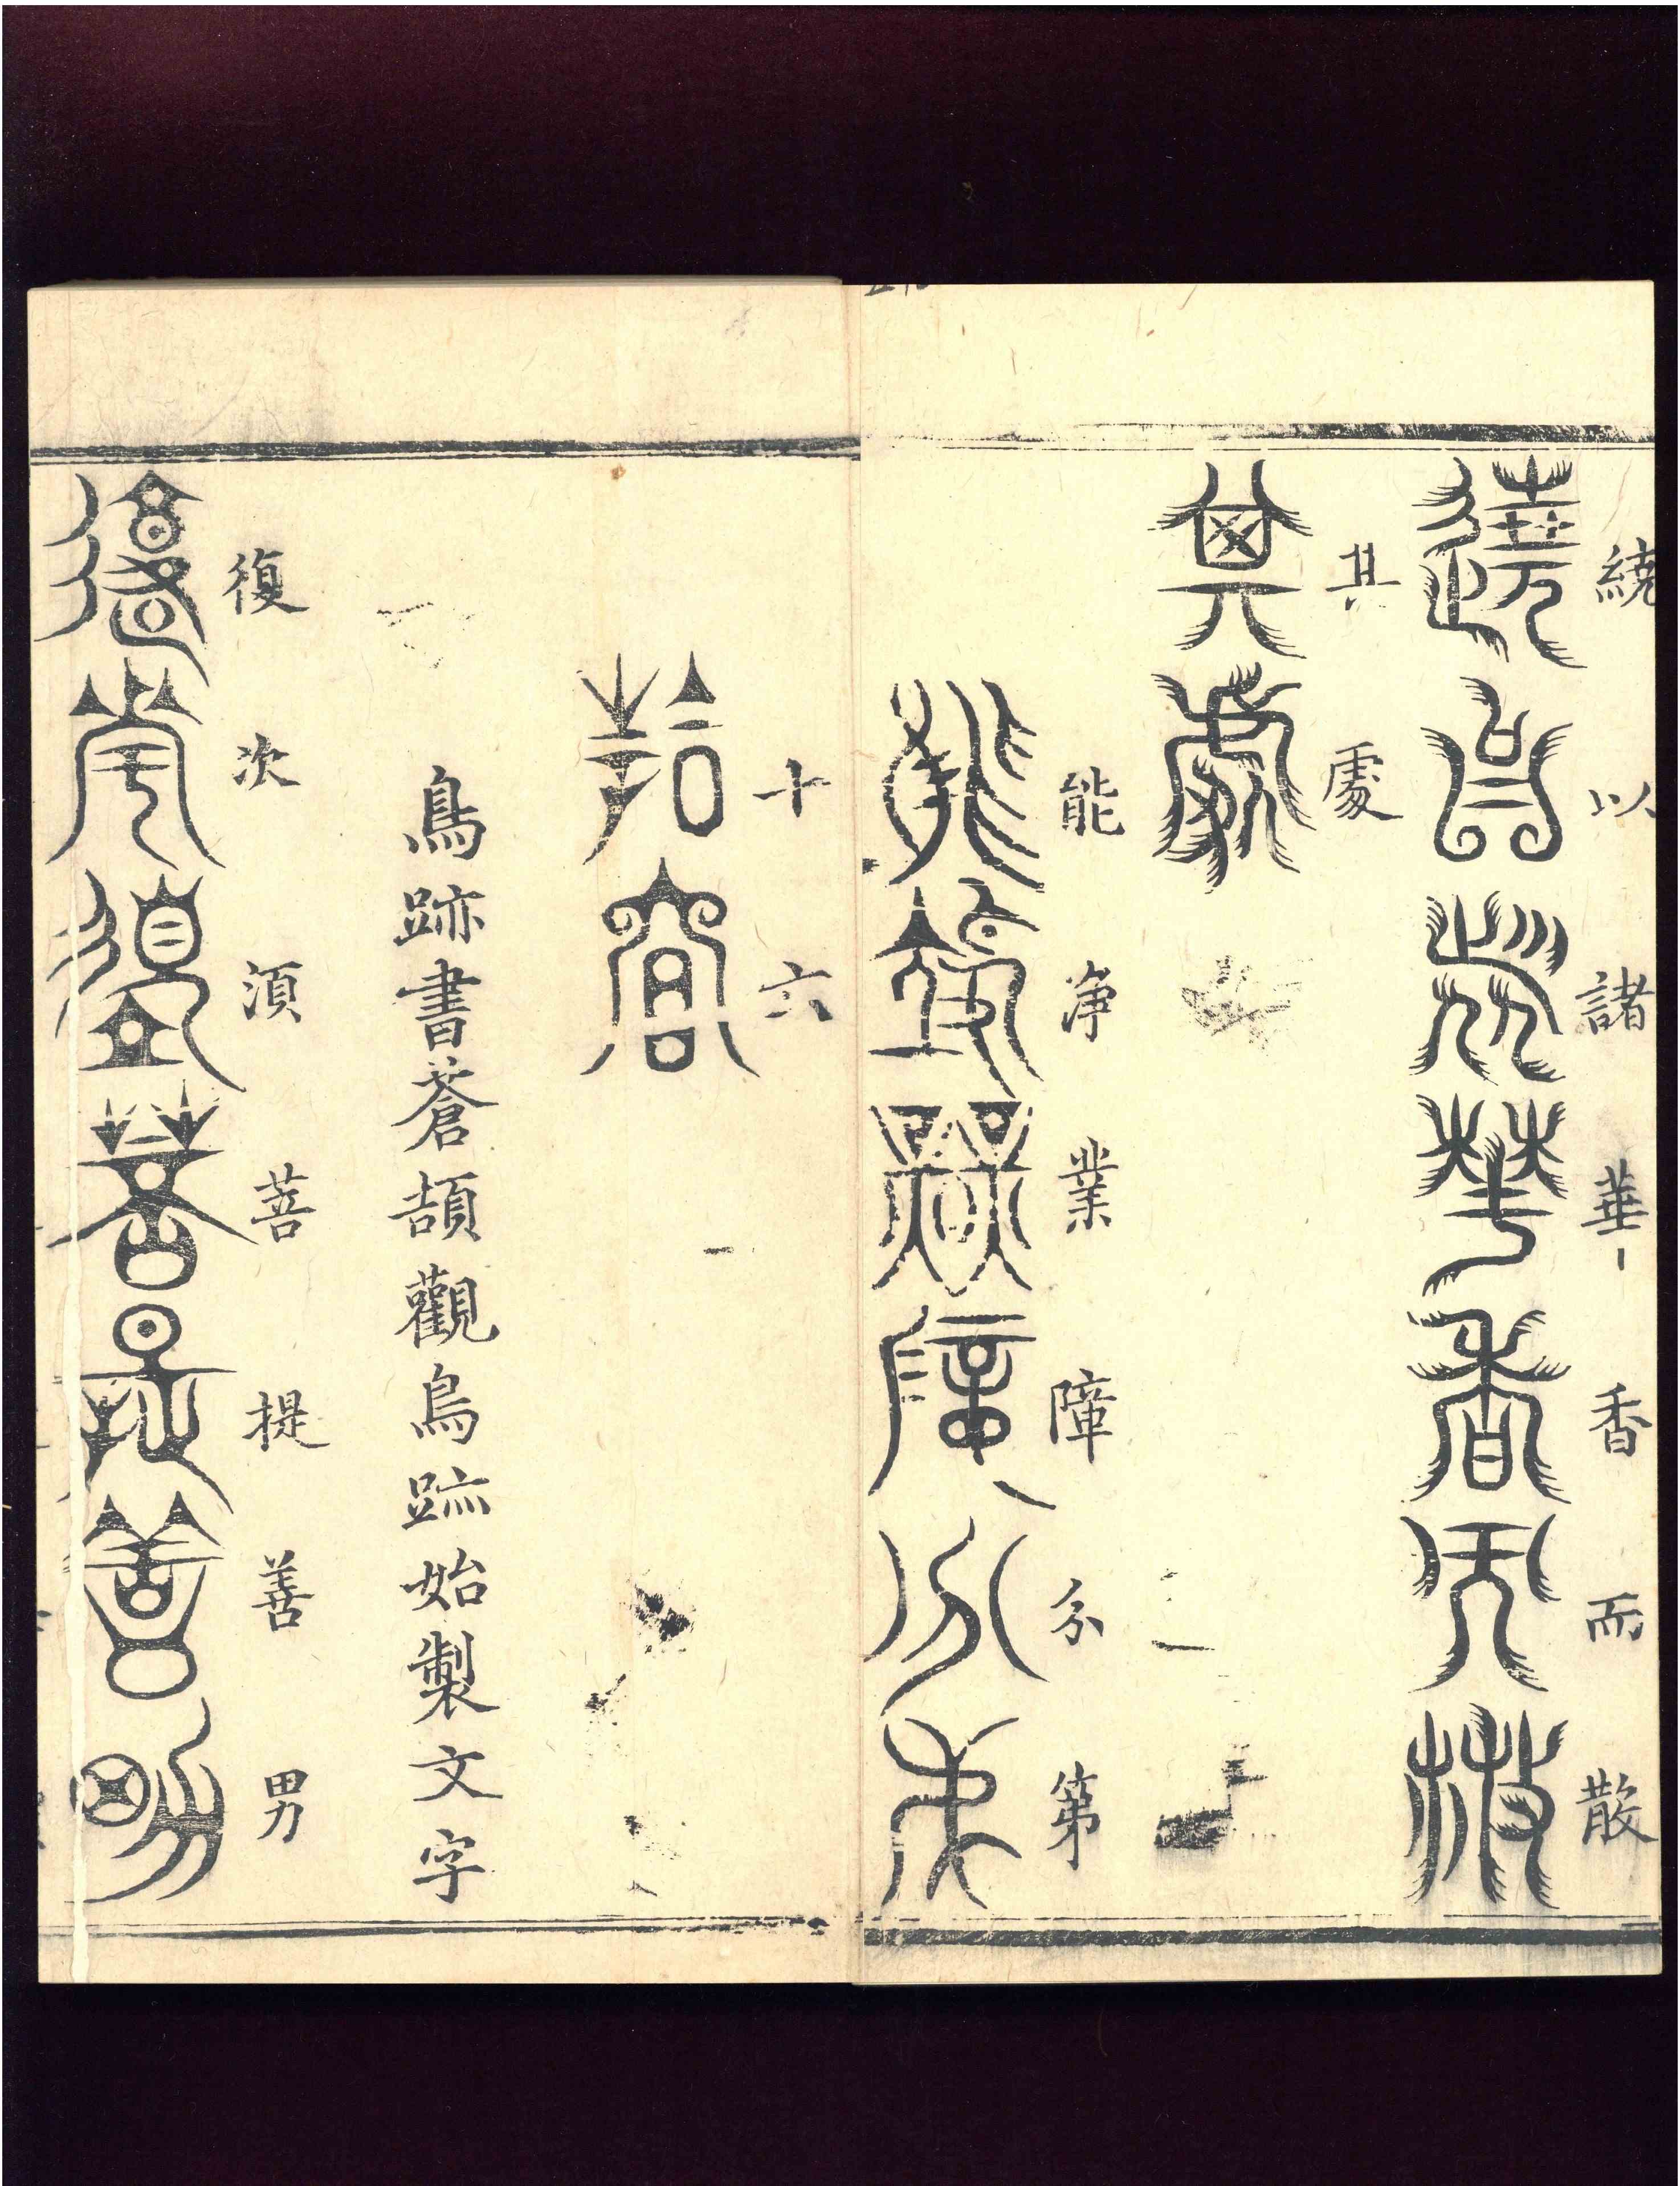 繞以諸華香而散
其處
能淨業障分第
十六
鳥跡書蒼頡觀鳥跡始製文字
復次須菩提善男